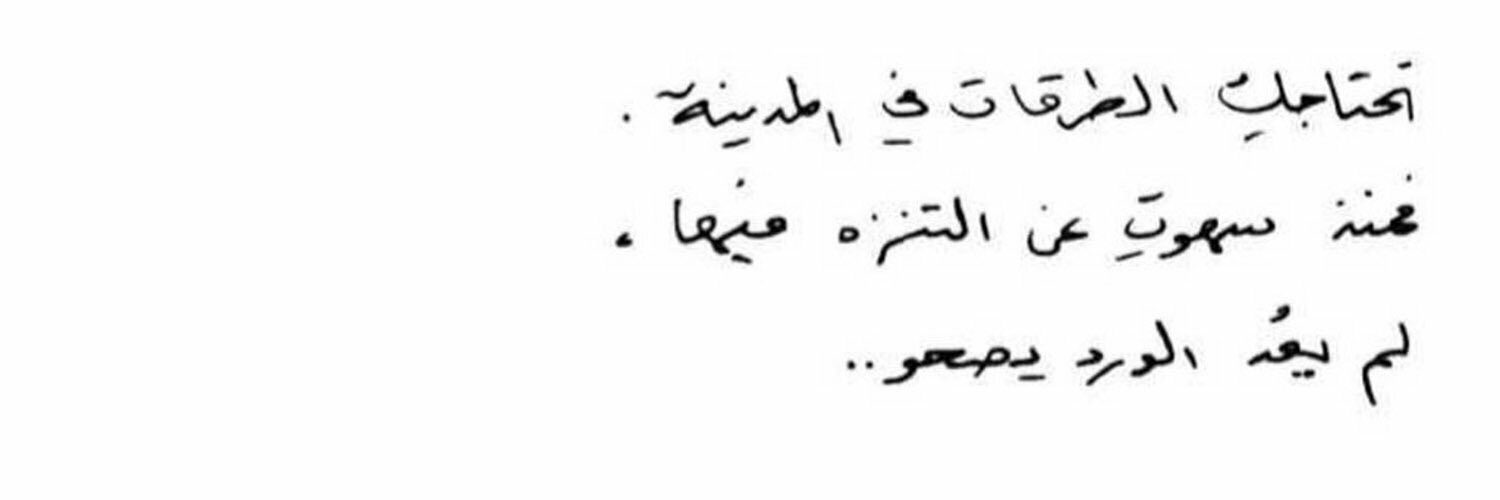 تحتاجكِ الطرقات في المدينة .
فمنذ سهوتِ عن التنزه فيها ،
لم يعُد الورد يصحو ..